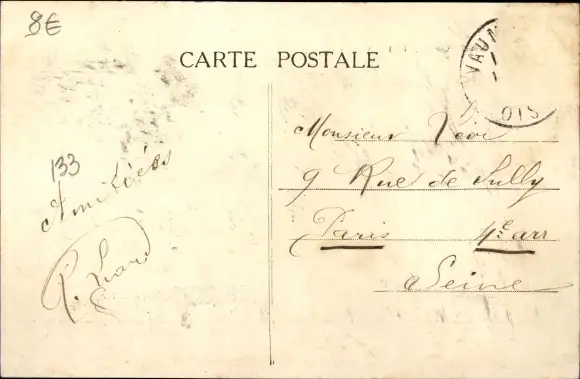 8€
CARTE POSTALE
VAU
OIS
133
Amitiés
Monsieur Levi
9 Rue de Sully
Paris 4e arr
Seine